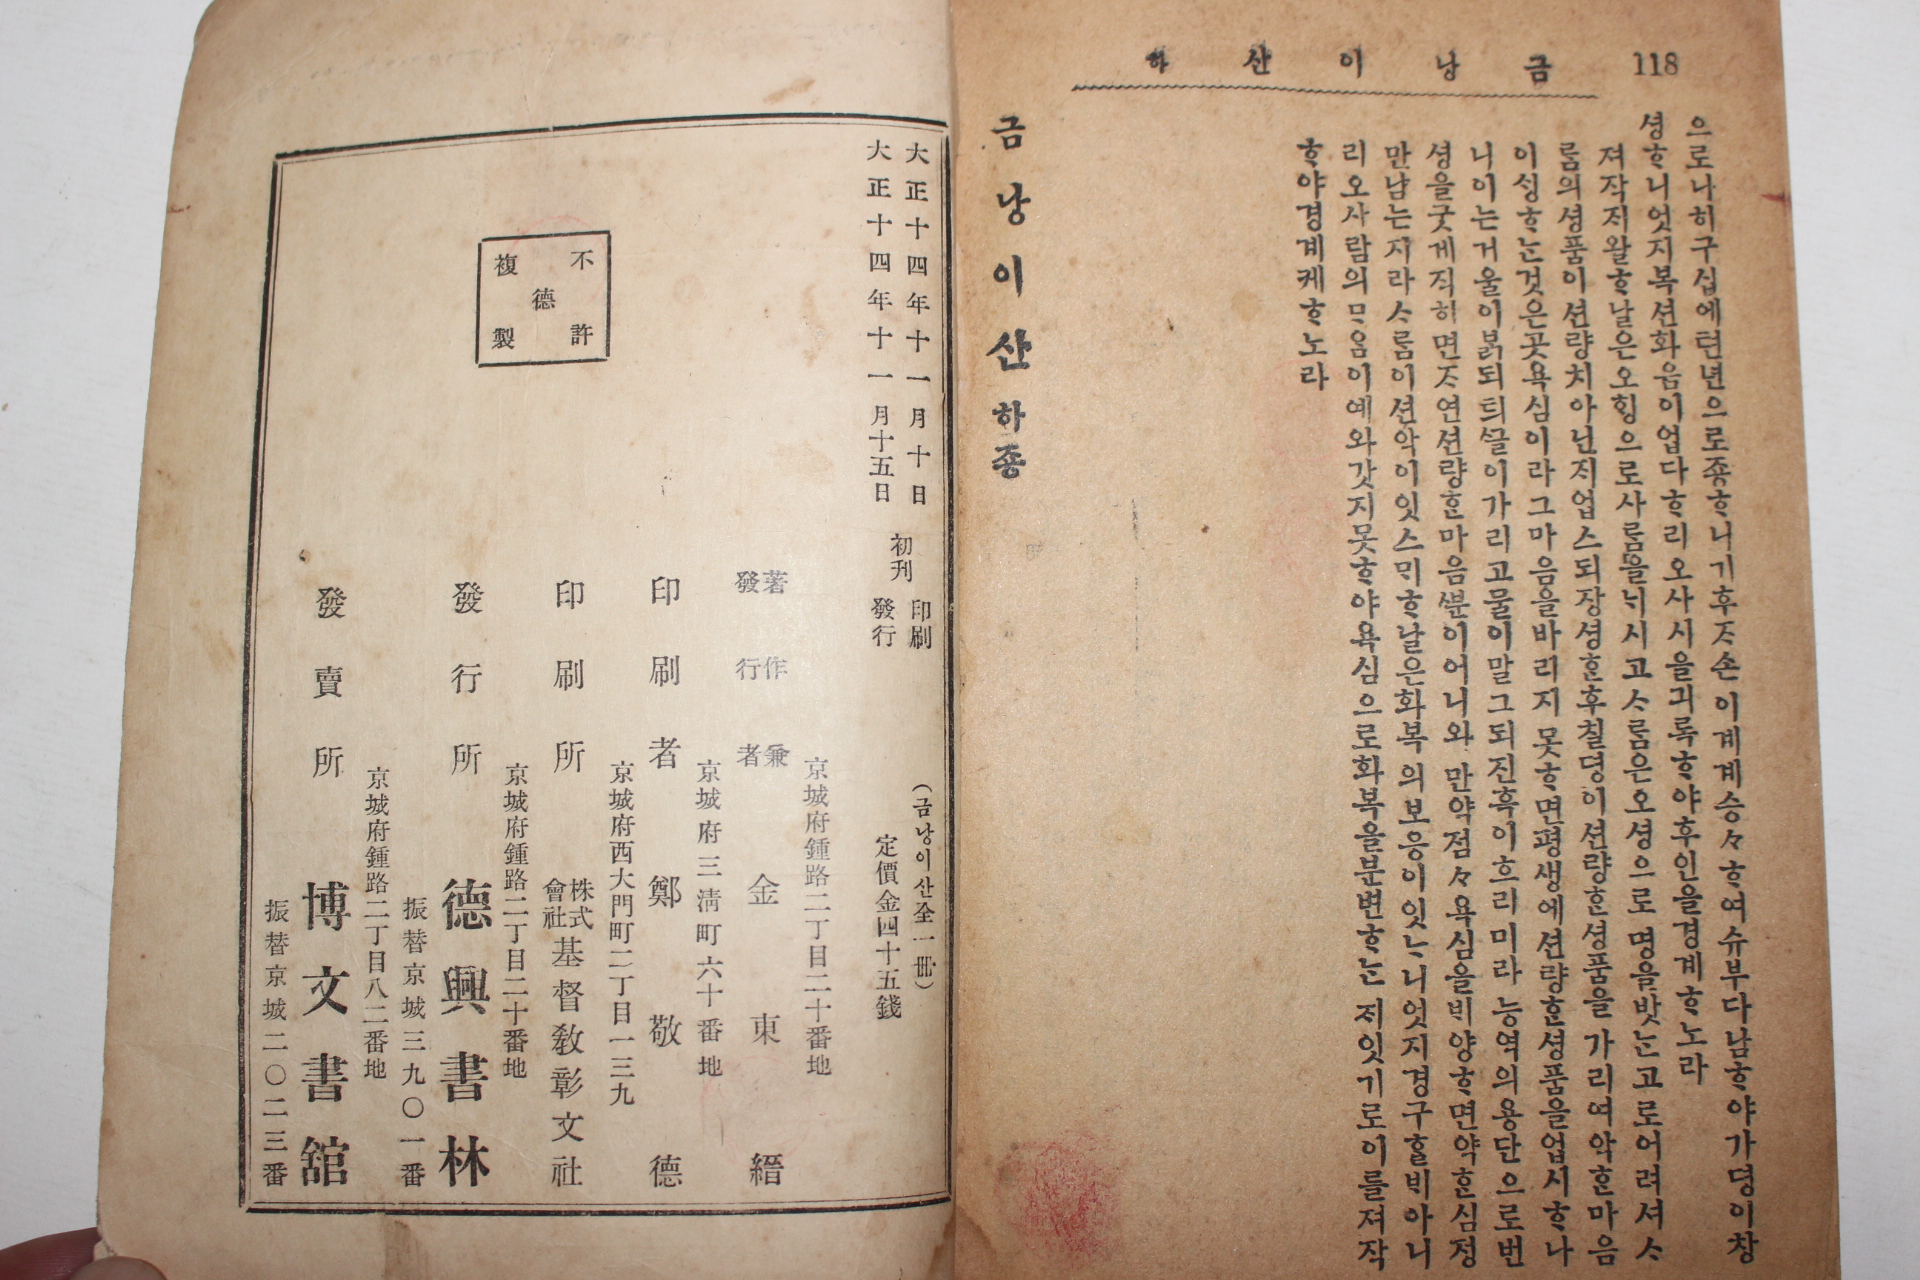 118
금낭이산하
으로나히구십에텬년으로죵ᄒᆞ니기후ᄌᆞ손이계계승々ᄒᆞ여슈부다남ᄒᆞ야가뎡이창
셩ᄒᆞ니엇지복션화음이업다ᄒᆞ리오사시을긔록ᄒᆞ야후인을경계ᄒᆞ노라
져작쟈왈ᄒᆞ날은오ᄒᆡᆼ으로사ᄅᆞᆷ을ᄂᆡ시고ᄉᆞᄅᆞᆷ은오셩으로명을밧ᄂᆞᆫ고로어려셔ᄉᆞ
ᄅᆞᆷ의셩품이션량치아닌지업스되장셩ᄒᆞᆫ후칠뎡이션량ᄒᆞᆫ셩품을가리여악ᄒᆞᆫ마음
이ᄉᆡᆼᄒᆞᄂᆞᆫ것은곳욕심이라그마음을바리지못ᄒᆞ면평생에션량ᄒᆞᆫ셩품을업시ᄒᆞ나
니이는거울이붉되틔ᄭᅳᆯ이가리고물이말그되진흑이흐리미라능역의용단으로번
셩을굿게직히면ᄌᆞ연션량ᄒᆞᆫ마음ᄲᅮᆫ이어니와만약점々욕심을ᄇᆡ양ᄒᆞ면약ᄒᆞᆫ심졍
만남는지라ᄉᆞᄅᆞᆷ이션악이잇스ᄆᆡᄒᆞ날은화복의보응이잇ᄂᆞ니엇지경구ᄒᆞᆯᄇᆡ아니
리오사람의ᄆᆞ음이예와갓지못ᄒᆞ야욕심으로화복을분변ᄒᆞᄂᆞᆫ쟈잇기로이를져작
ᄒᆞ야경계케ᄒᆞ노라
금낭이산하죵
大正十四年十一月十日 初刊 印刷
大正十四年十一月十五日 發行
(금낭이산全一冊)
定價金四十五錢
不許
德
複製
京城府鍾路二丁目二十番地
著作兼
發行者 金東縉
京城府三淸町六十番地
印刷者 鄭敬德
京城府西大門町二丁目一三九
印刷所 株式會社 基督敎彰文社
京城府鍾路二丁目二十番地
發行所 德興書林
振替京城三九〇一番
京城府鍾路二丁目八二番地
發賣所 博文書館
振替京城二〇二三番